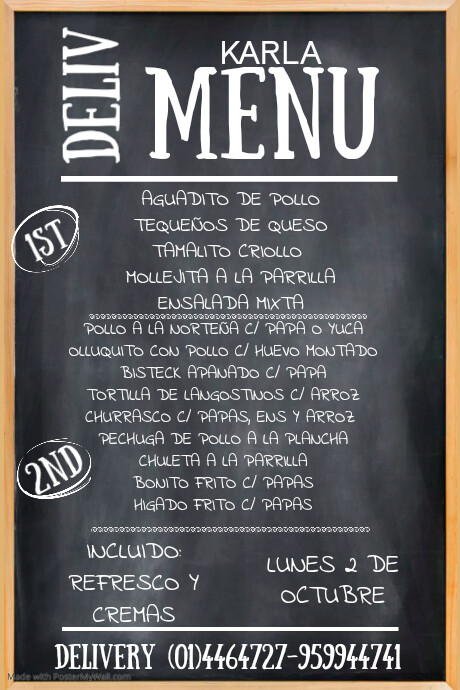 DELIV
KARLA
MENU
1ST
AGUADITO DE POLLO
TEQUEÑOS DE QUESO
TAMALITO CRIOLLO
MOLLEJITA A LA PARRILLA
ENSALADA MIXTA
POLLO A LA NORTEÑA C/ PAPA O YUCA
OLLUQUITO CON POLLO C/ HUEVO MONTADO
BISTECK APANADO C/ PAPA
TORTILLA DE LANGOSTINOS C/ ARROZ
CHURRASCO C/ PAPAS, ENS Y ARROZ
PECHUGA DE POLLO A LA PLANCHA
2ND
CHULETA A LA PARRILLA
BONITO FRITO C/ PAPAS
HIGADO FRITO C/ PAPAS
INCLUIDO:
REFRESCO Y
CREMAS
LUNES 2 DE
OCTUBRE
DELIVERY (01)4464727-959944741
Made with PosterMyWall.com